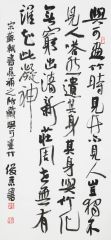 與可畫竹時見竹不見人豈獨不
見人嗒然遺其身其身與竹化
無窮出清新莊周世無有
誰知此凝神
宋蘇軾書晁補之所藏與可畫竹